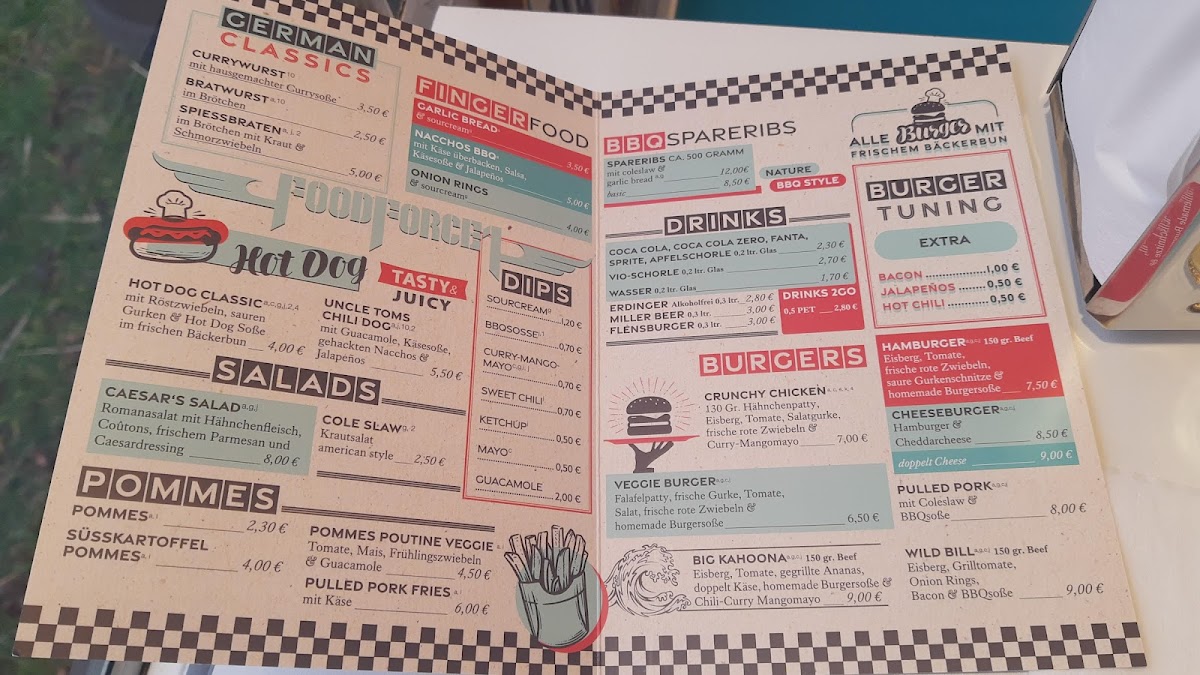 GERMAN
CLASSICS
CURRYWURST
mit hausgemachter Currysoße
3,50 €
BRATWURST
im Brötchen
2,50 €
SPIESSBRATEN
im Brötchen mit Kraut &
Schmorzwiebeln
5,00 €
FINGERFOOD
GARLIC BREAD
& sourcream
3,50 €
NACCHOS BBQ
mit Käse überbacken, Salsa,
Käsesoße & Jalapeños
5,00 €
ONION RINGS
& sourcream
4,00 €
FOODFORCE
Hot Dog
TASTY &
JUICY
HOT DOG CLASSIC a,c,g,j,2,4
mit Röstzwiebeln, sauren
Gurken & Hot Dog Soße
im frischen Bäckerbun 4,00 €
UNCLE TOMS
CHILI DOG
mit Guacamole, Käsesoße,
gehackten Nacchos &
Jalapeños
5,50 €
DIPS
SOURCREAM
1,20 €
BBQSOSSE
0,70 €
CURRY-MANGO-
MAYO
0,70 €
SWEET CHILI
0,70 €
KETCHUP
0,50 €
MAYO
0,50 €
GUACAMOLE
2,00 €
SALADS
CAESAR'S SALAD a,g,j
Romanasalat mit Hähnchenfleisch,
Coûtons, frischem Parmesan und
Caesardressing 8,00 €
COLE SLAW g, 2
Krautsalat
american style 2,50 €
POMMES
POMMES 2,30 €
SÜSSKARTOFFEL
POMMES 4,00 €
POMMES POUTINE VEGGIE
Tomate, Mais, Frühlingszwiebeln
& Guacamole 4,50 €
PULLED PORK FRIES
mit Käse 6,00 €
BBQSPARERIBS
SPARERIBS CA. 500 GRAMM
mit coleslaw &
garlic bread 12,00€
basic 8,50 €
NATURE
BBQ STYLE
DRINKS
COCA COLA, COCA COLA ZERO, FANTA,
SPRITE, APFELSCHORLE 0,2 ltr. Glas 2,30 €
VIO-SCHORLE 0,2 ltr. Glas 2,70 €
WASSER 0,2 ltr. Glas 1,70 €
ERDINGER Alkoholfrei 0,3 ltr. 2,80 €
MILLER BEER 0,3 ltr. 3,00 €
FLENSBURGER 0,3 ltr. 3,00 €
DRINKS 2GO
0,5 PET 2,80 €
ALLE Burger MIT
FRISCHEM BÄCKERBUN
BURGER
TUNING
EXTRA
BACON 1,00 €
JALAPEÑOS 0,50 €
HOT CHILI 0,50 €
BURGERS
CRUNCHY CHICKEN
130 Gr. Hähnchenpatty,
Eisberg, Tomate, Salatgurke,
frische rote Zwiebeln &
Curry-Mangomayo 7,00 €
VEGGIE BURGER
Falafelpatty, frische Gurke, Tomate,
Salat, frische rote Zwiebeln &
homemade Burgersoße 6,50 €
BIG KAHOONA 150 gr. Beef
Eisberg, Tomate, gegrillte Ananas,
doppelt Käse, homemade Burgersoße &
Chili-Curry Mangomayo 9,00 €
HAMBURGER 150 gr. Beef
Eisberg, Tomate,
frische rote Zwiebeln,
saure Gurkenschnitze &
homemade Burgersoße 7,50 €
CHEESEBURGER
Hamburger &
Cheddarcheese 8,50 €
doppelt Cheese 9,00 €
PULLED PORK
mit Coleslaw &
BBQsoße 8,00 €
WILD BILL 150 gr. Beef
Eisberg, Grilltomate,
Onion Rings,
Bacon & BBQsoße 9,00 €